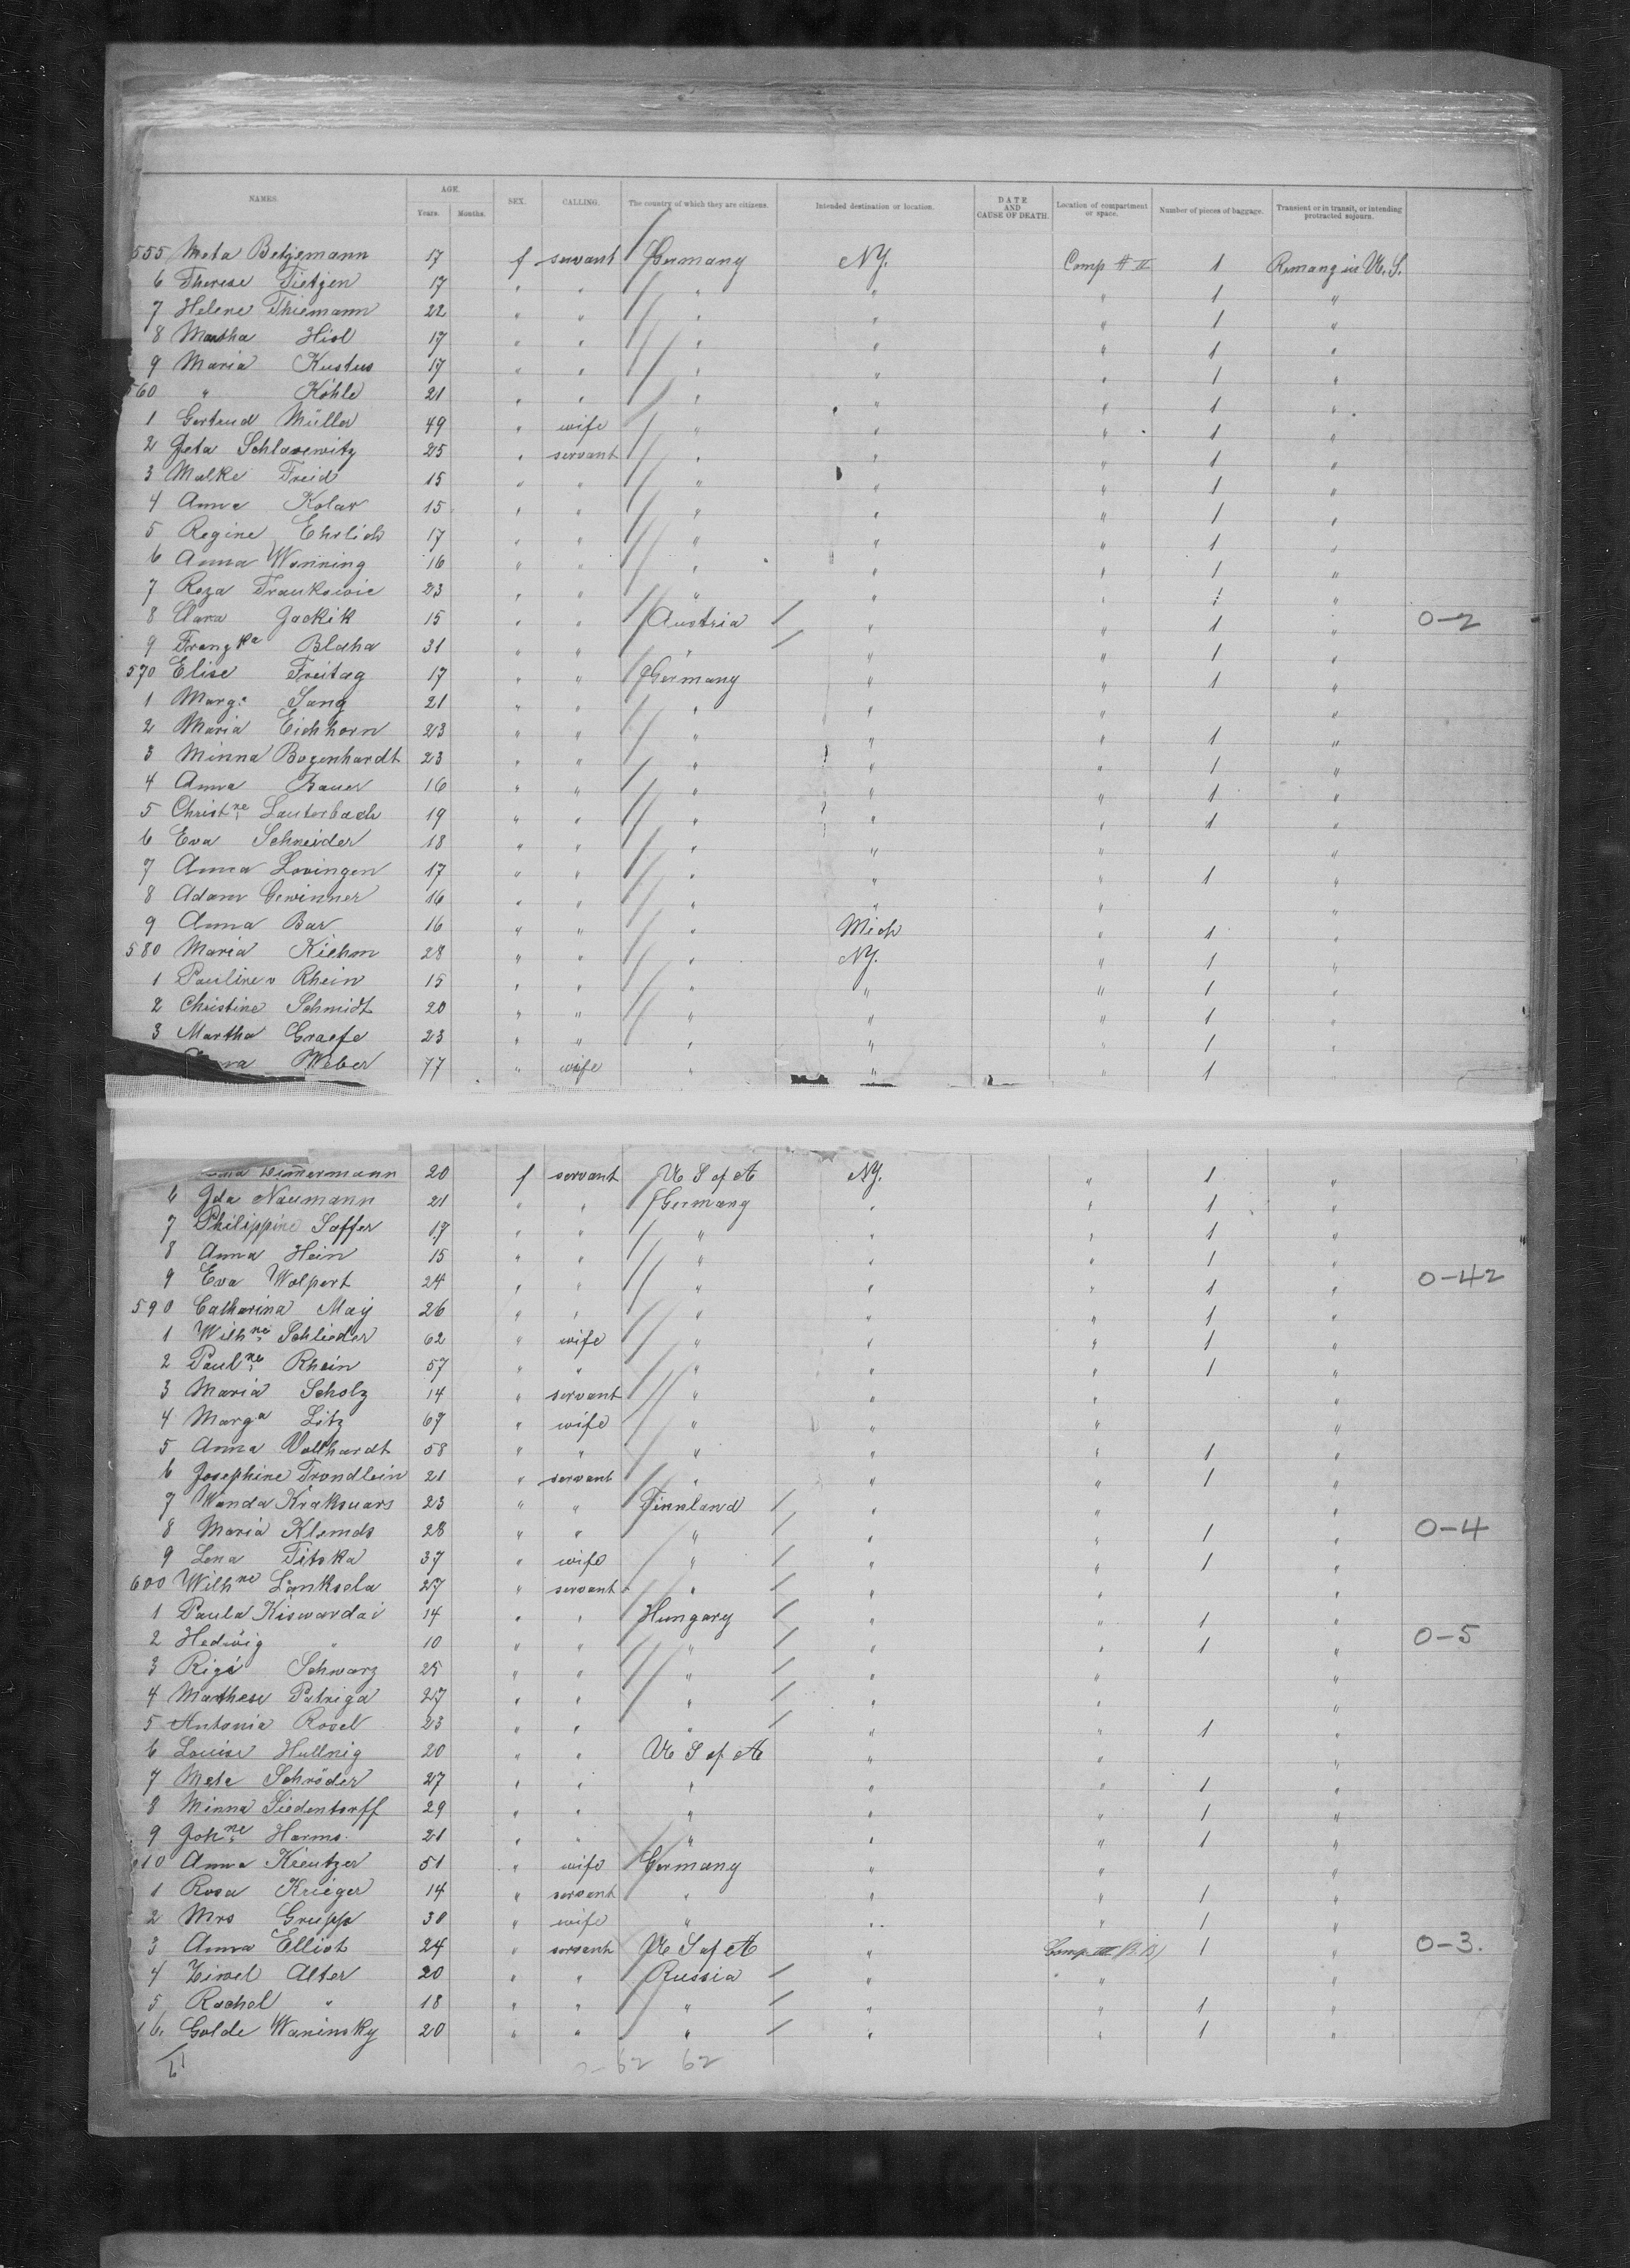 NAMES. AGE. SEX. CALLING. The country of which they are citizens. Intended destination or location. DATE AND CAUSE OF DEATH. Location of compartment or space. Number of pieces of baggage. Transient or in transit, or intending protracted sojourn.
Years. Months.
555 Meta Betjemann 17 f servant Germany NY. Comp # II 1 Remang in U.S.
6 Therese Tietjen 17 " " " " " 1 "
7 Helene Thiemann 22 " " " " " 1 "
8 Martha Hisl 17 " " " " " 1 "
9 Maria Kustus 17 " " " " " 1 "
560 " Köhle 21 " " " " " 1 "
1 Gertrud Müller 49 " wife " " " 1 "
2 Jeta Schlasewitz 25 " servant " " " 1 "
3 Malke Freid 15 " " " " " 1 "
4 Anna Kolar 15 " " " " " 1 "
5 Regine Ehrlich 17 " " " " " 1 "
6 Anna Wenning 16 " " " " " 1 "
7 Roza Franksivic 23 " " " " " 1 "
8 Clara Jackik 15 " " Austria " " 1 " 0-2
9 Franzka Blaha 31 " " " " " 1 "
570 Elise Freitag 17 " " Germany " " 1 "
1 Marg. Lang 21 " " " " " "
2 Maria Eichhorn 23 " " " " " 1 "
3 Minna Bogenhardt 23 " " " " " 1 "
4 Anna Bauer 16 " " " " " 1 "
5 Christne Lauterbach 19 " " " " " 1 "
6 Eva Schneider 18 " " " " " "
7 Anna Lovingen 17 " " " " " 1 "
8 Adam Gewinner 16 " " " " " "
9 Anna Bar 16 " " " Mich " 1 "
580 Maria Kiehm 28 " " " NY. " 1 "
1 Pauline v Rhein 15 " " " " " 1 "
2 Christine Schmidt 20 " " " " " 1 "
3 Martha Graefe 23 " " " " " 1 "
Weber 77 " wife " " " 1
Zimmermann 20 f servant U S of A NY. " 1 "
6 Ida Naumann 21 " " Germany " " 1 "
7 Philippine Saffer 17 " " " " " 1 "
8 Anna Hein 15 " " " " " 1 "
9 Eva Wolpert 24 " " " " " 1 " 0-42
590 Catharina May 26 " " " " " 1 "
1 Wilhne Schlieder 62 " wife " " " 1 "
2 Paulne Rhein 57 " " " " " 1 "
3 Maria Scholz 14 " servant " " " "
4 Marga Litz 67 " wife " " " "
5 Anna Vollhardt 58 " " " " " 1 "
6 Josephine Trondlein 21 " servant " " " 1 "
7 Wanda Kraksuars 23 " " Finnland " " "
8 Maria Klemds 28 " " " " " 1 " 0-4
9 Lena Titska 37 " wife " " " 1 "
600 Wilhne Lanksela 27 " servant " " " "
1 Paula Kiswardai 14 " " Hungary " " 1 "
2 Hedwig " 10 " " " " " 1 " 0-5
3 Rigi Schwarz 25 " " " " " "
4 Marthese Patriga 27 " " " " " "
5 Antonia Rosel 23 " " " " " 1 "
6 Louise Hullnig 20 " " U S of A " " "
7 Meta Schröder 27 " " " " " 1 "
8 Minna Siedentorff 29 " " " " " 1 "
9 Johne Harms 21 " " " " " 1 "
610 Anna Kreutzer 51 " wife Germany " " "
1 Rosa Krieger 14 " servant " " " 1 "
2 Mrs Grupp 30 " wife " " " 1 "
3 Anna Elliot 24 " servant U S of A " Comp III 1 " 0-3.
4 Ziwel Alter 20 " " Russia " " "
5 Rachel " 18 " " " " " 1 "
16 Golde Waninsky 20 " " " " " 1 "
61 0-62 62